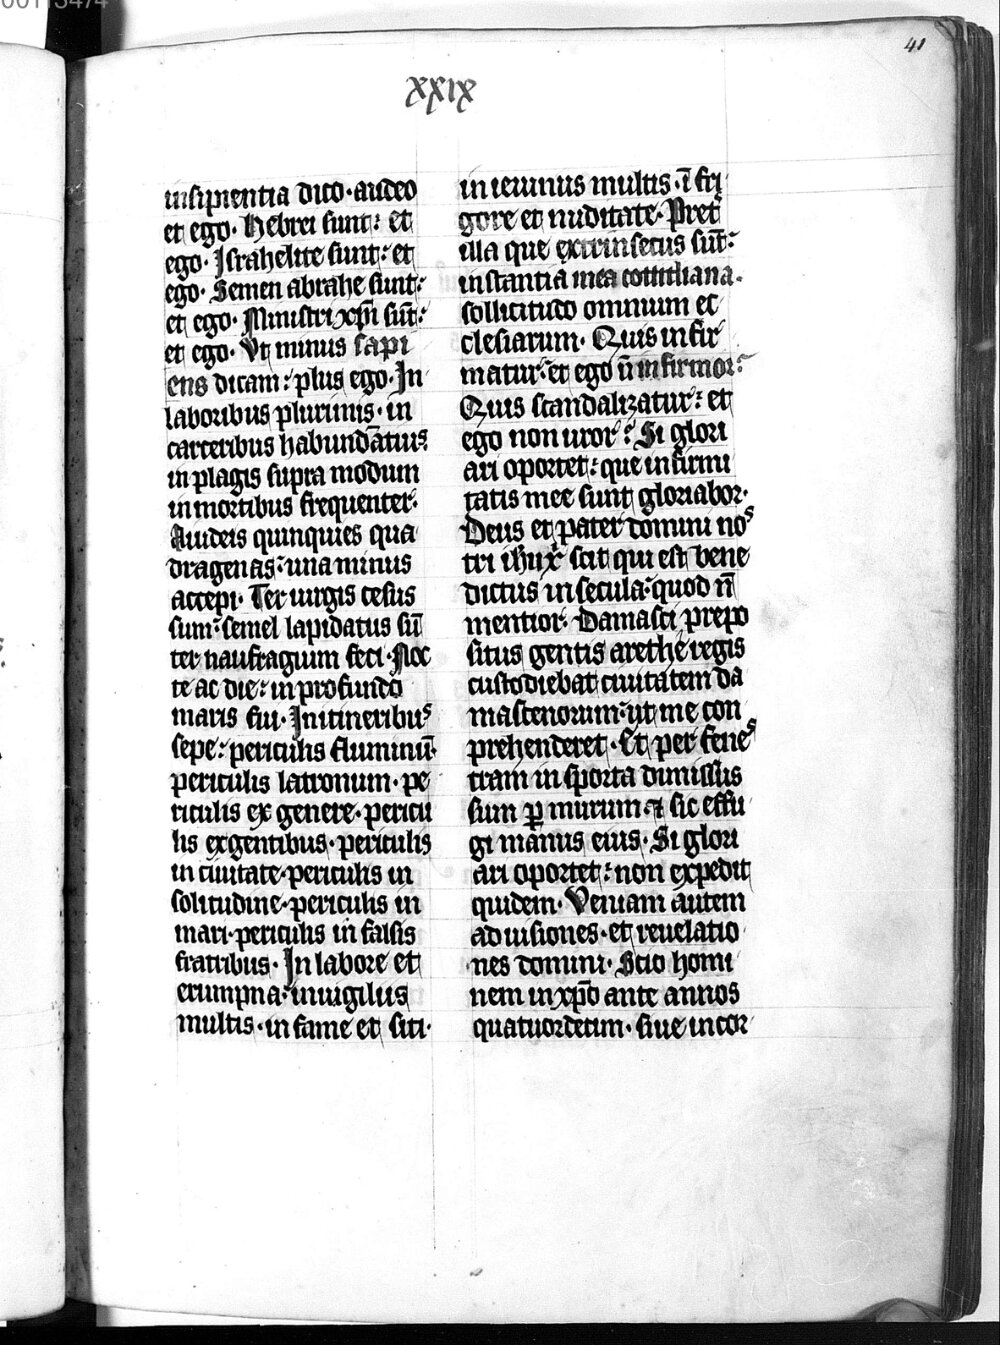 41
xxix
insipientia dico · audeo
et ego · Hebrei sunt : et
ego · Israhelite sunt : et
ego · Semen abrahe sunt :
et ego · Ministri xp̄i sūt :
et ego · Vt minus sapi
ens dicam : plus ego · In
laboribus plurimis · in
carceribus habundātius :
in plagis supra modum
in mortibus frequenter ·
A iudeis quinquies qua
dragenas : una minus
accepi · Ter uirgis cesus
sum : semel lapidatus sū
ter naufragium feci · Noc
te ac die : in profundo
maris fui · In itineribus
sepe : periculis fluminū ·
periculis latronum · pe
riculis ex genere · pericu
lis ex gentibus · periculis
in ciuitate · periculis in
solitudine · periculis in
mari · periculis in falsis
fratribus · In labore et
erumpna : in uigiliis
multis · in fame et siti ·
in ieiuniis multis · ī fri
gore et nuditate · Pret
illa que extrinsecus sūt :
instantia mea cottidiana ·
sollicitudo omnium ec
clesiarum · Quis infir
matur : et ego n̄ infirmor :
Quis scandalizatur : et
ego non uror : Si glori
ari oportet : que infirmi
tatis mee sunt gloriabor ·
Deus et pater domini nos
tri ihu xp̄i scit qui est bene
dictus in secula : quod n̄
mentior · Damasci prepo
situs gentis arethe regis
custodiebat ciuitatem da
mascenorum : ut me con
prehenderet · Et per fenes
tram in sporta dimissus
sum ꝑ murum · ⁊ sic effu
gi manus eius · Si glori
ari oportet : non expedit
quidem · Veniam autem
ad uisiones · et reuelatio
nes domini · Scio homi
nem in xp̄o ante annos
quatuordecim · siue in cor